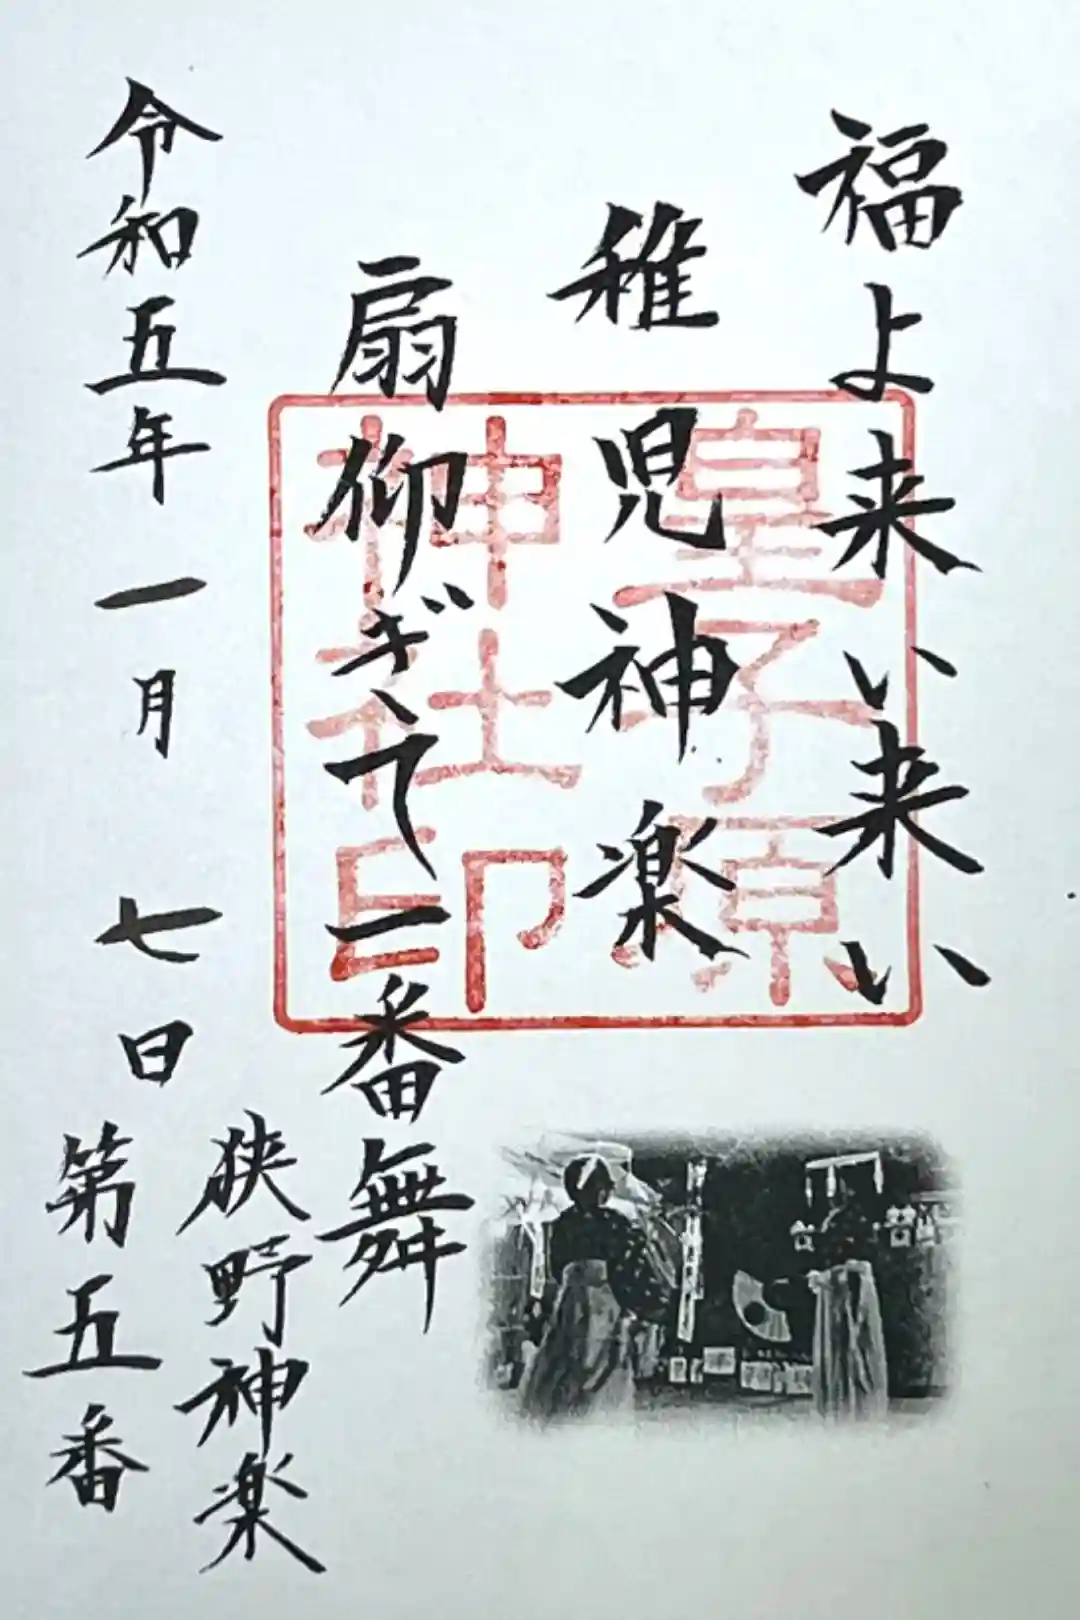 福よ来い来い
稚児神楽
扇仰ぎて一番舞
令和五年一月七日
狭野神楽
第五番
皇子原
神社印